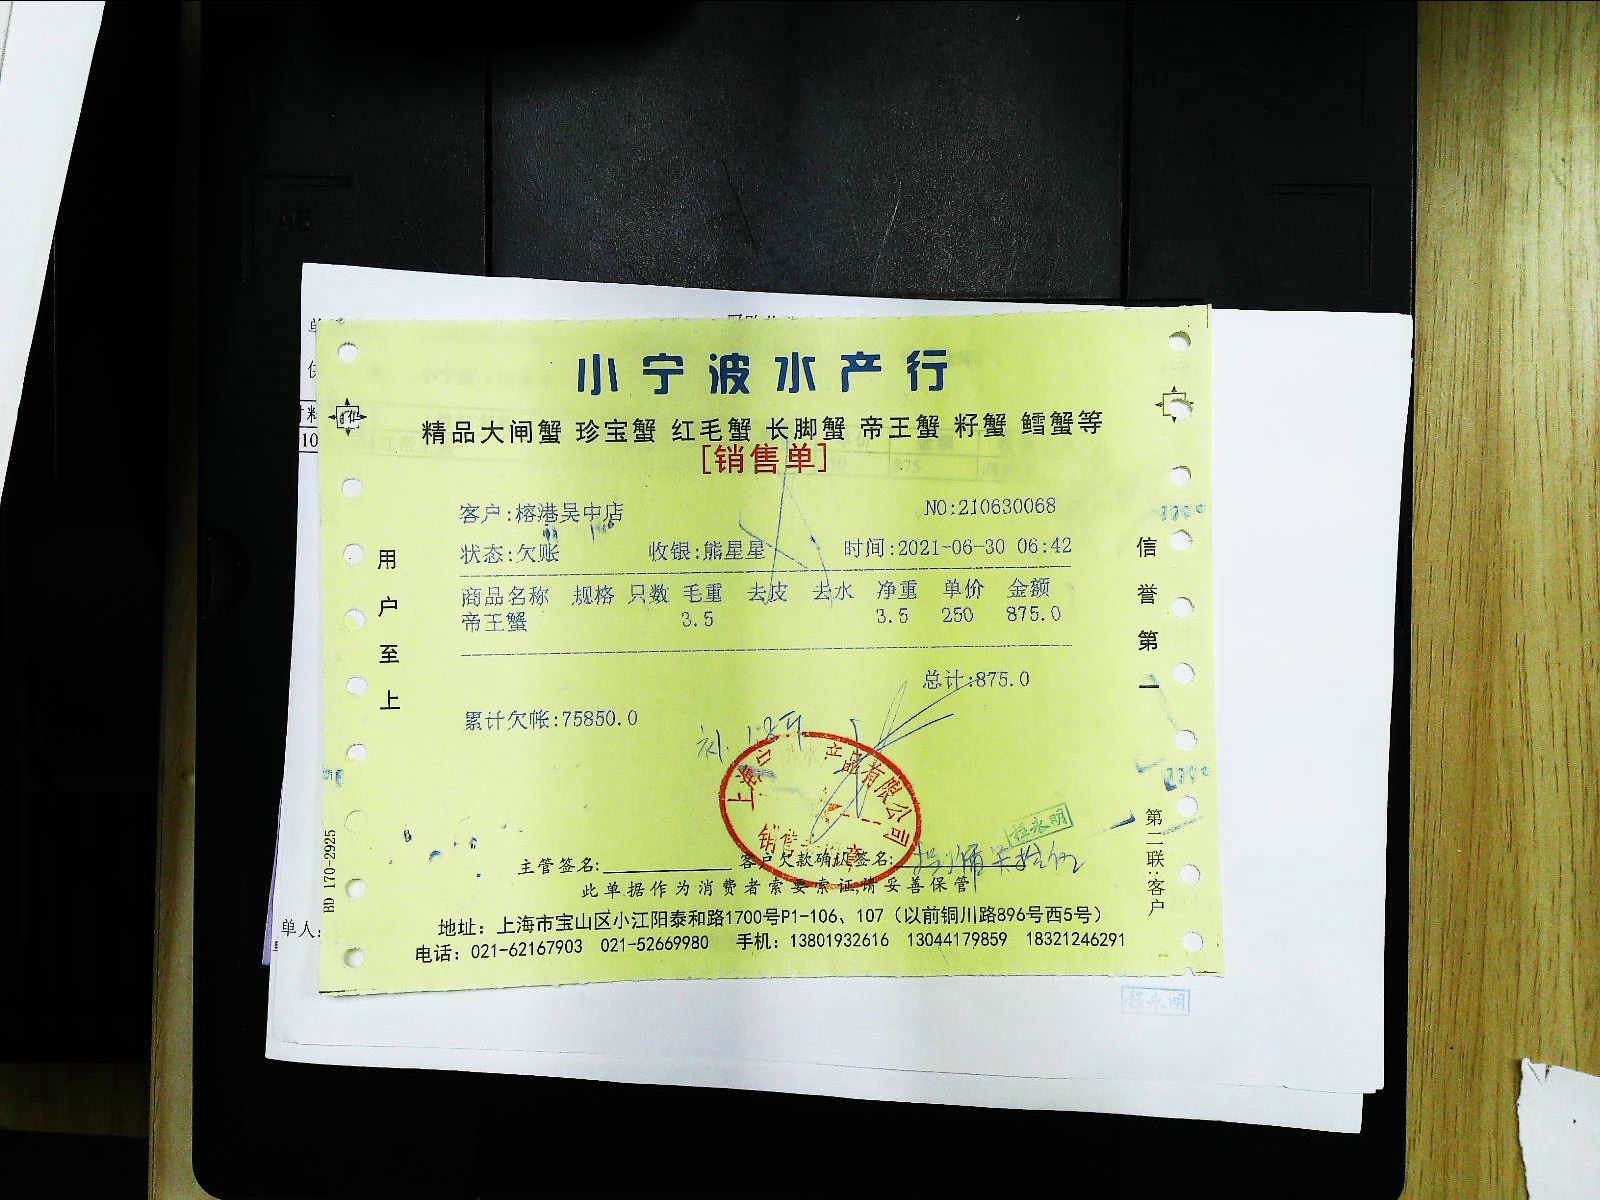 小宁波水产行
精品大闸蟹 珍宝蟹 红毛蟹 长脚蟹 帝王蟹 籽蟹 鳕蟹等
[销售单]
客户:榕港吴中店 NO:210630068
状态:欠账 收银:熊星星 时间:2021-06-30 06:42
商品名称 规格 只数 毛重 去皮 去水 净重 单价 金额
帝王蟹 3.5 3.5 250 875.0
总计:875.0
累计欠帐:75850.0
用户至上
信誉第一
上海 产品有限公司
销售 章
程永明
主管签名: 客户欠款确认签名:
此单据作为消费者索要索证,请妥善保管
地址：上海市宝山区小江阳泰和路1700号P1-106、107（以前铜川路896号西5号）
电话：021-62167903 021-52669980 手机：13801932616 13044179859 18321246291
第二联:客户
BD 170-2925
单人:
程永明
10